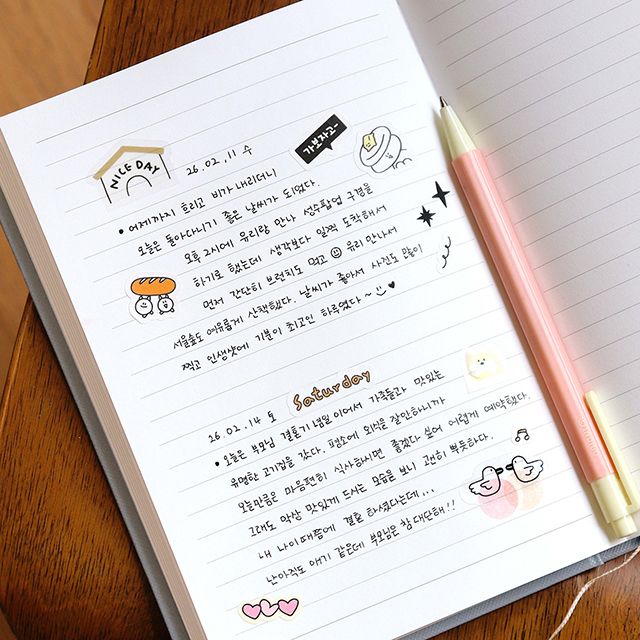 NICE DAY
26.02.11 수
가보자고~
• 어제까지 흐리고 비가 내리더니
오늘은 돌아다니기 좋은 날씨가 되었다.
오후 2시에 유리랑 만나 성수팝업 구경을
하기로 했는데 생각보다 일찍 도착해서
먼저 간단히 브런치도 먹고 유리 만나서
서울숲도 여유롭게 산책했다. 날씨가 좋아서 사진도 많이
찍고 인생샷에 기분이 최고인 하루였다~
Saturday
26.02.14 토
• 오늘은 부모님 결혼기념일 이어서 가족들과 맛있는
유명한 고기집을 갔다. 평소에 외식을 잘안하니까
오늘만큼은 마음편히 식사하시면 좋겠다 싶어 어렵게 예약했다.
그래도 막상 맛있게 드시는 모습을 보니 괜히 뿌듯하다.
내 나이때쯤에 결혼 하셨다는데...
난아직도 애기 같은데 부모님은 참 대단해!!